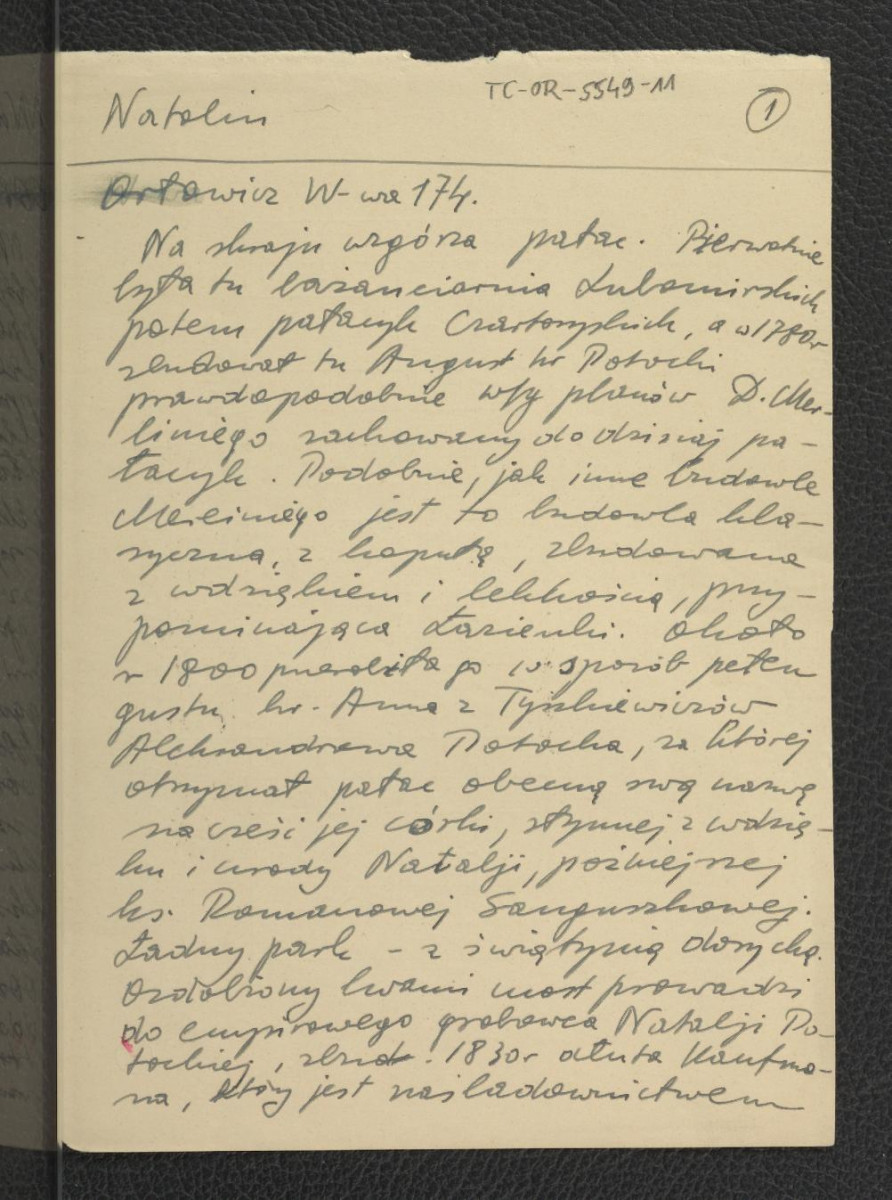 TC-OR-5549-11
Natolin
1
Orłowicz W-wa 174.
Na skraju wzgórza pałac. Pierwotnie
była tu bażanciarnia Lubomirskich
potem pałacyk Czartoryskich, a w 1780 r
zbudował tu August hr Potocki
prawdopodobnie wg planów D. Mer-
liniego zachowany do dzisiaj pa-
łacyk. Podobnie, jak inne budowle
Merliniego jest to budowla kla-
syczna, z kopułą, zbudowana
z wdziękiem i lekkością, przy-
pominająca Łazienki. Około
r 1800 przerobiła go w sposób pełen
gustu hr. Anna z Tyszkiewiczów
Aleksandrowa Potocka, za której
otrzymał pałac obecną swą nazwę
na cześć jej córki, słynnej z wdzię-
ku i urody Natalji, późniejszej
ks. Romanowej Sanguszkowej.
Ładny park - z świątynią dorycką.
Ozdobiony lwami most prowadzi
do empirowego grobowca Natalji Po-
tockiej, zbud. 1830 r dłuta Kaufma-
na, który jest naśladownictwem